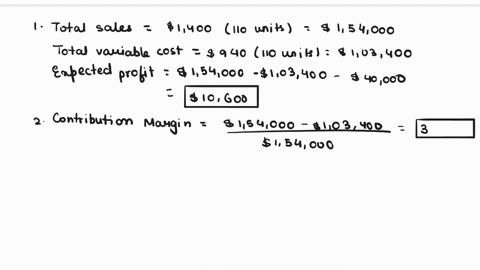 1. Total sales = $1,400 (110 units) = $1,54,000
Total variable cost = $940 (110 units) = $1,03,400
Expected profit = $1,54,000 - $1,03,400 - $40,000
= $10,600
2. Contribution Margin = $1,54,000 - $1,03,400 = 3
$1,54,000